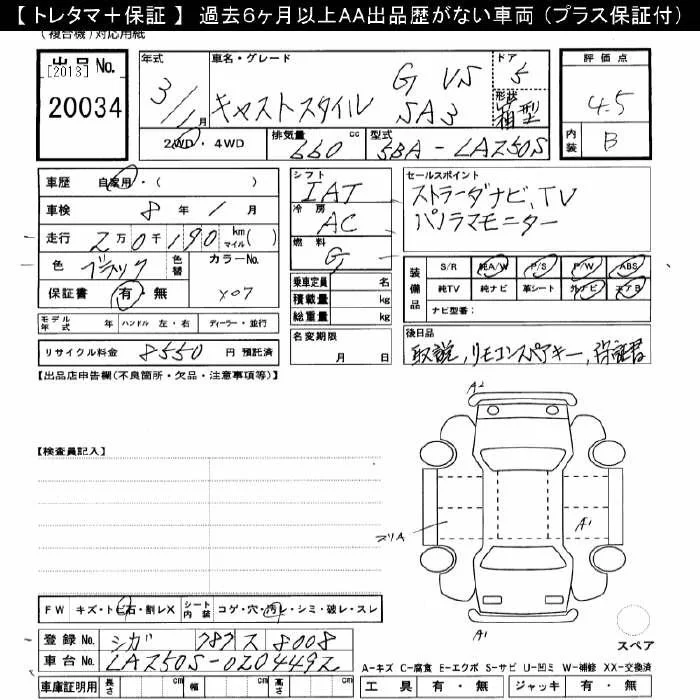 【 トレタマ＋保証 】 過去6ヶ月以上AA出品歴がない車両（プラス保証付）
(複合機) 対応用紙
出品 No.
[2013]
20034
年式
3/1月
車名・グレード
G VS
キャストスタイル SA3
ドア
5
形状
箱型
2WD・4WD
排気量 660 cc
型式 5BA-LA250S
評価点
4.5
内装 B
車歴 自家用・( )
車検 8年 1月
走行 2万0千190 km マイル( )
色 ブラック 色替 カラーNo. X07
保証書 有・無
シフト
IAT
冷房
AC
燃料
G
乗車定員 名
積載量 kg
総重量 kg
セールスポイント
ストラーダナビ、TV
パノラマモニター
装備品
S/R 純A/W P/S P/W ABS
純TV 純ナビ 革シート 外ナビ エアB
ナビ型番：
モデル年式 年 ハンドル 左・右 ディーラー・並行
リサイクル料金 8550 円 預託済
名変期限
月 日
後日品
取説,リモコンスペアキー,保証書
【出品店申告欄(不良箇所・欠品・注意事項等)】
【検査員記入】
A2
スリA
A1
A1
スペア
FW キズ・トビ石・割レX シート内装 コゲ・穴・汚レ・シミ・破レ・スレ
登録 No. シガ 787 ス 8008
車台 No. LA250S-0204492
A-キズ C-腐食 E-エクボ S-サビ U-凹ミ W-補修 XX-交換済
車庫証明用 長さ cm 幅 cm 高さ cm
工具 有・無 ジャッキ 有・無